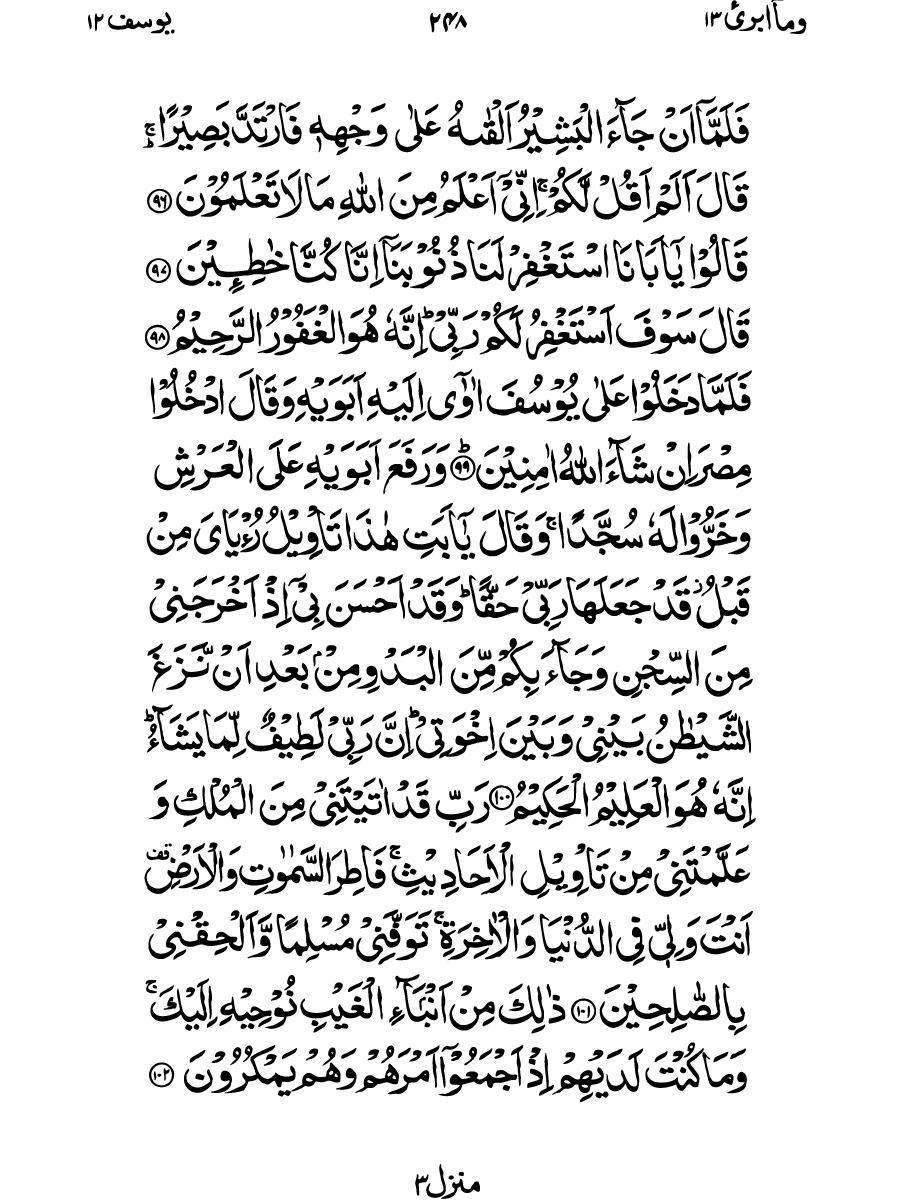 وماۤابرئ ١٣ ٢٤٨ يوسف ١٢
فَلَمَّاۤ اَنْ جَآءَ الْبَشِيْرُ اَلْقٰىهُ عَلٰى وَجْهِهٖ فَارْتَدَّ بَصِيْرًاۚ ؕ
قَالَ اَلَمْ اَقُلْ لَّكُمْ ۚۙ اِنِّىْۤ اَعْلَمُ مِنَ اللّٰهِ مَا لَا تَعْلَمُوْنَ ﴿٩٦﴾
قَالُوْا يٰۤاَبَانَا اسْتَغْفِرْ لَنَا ذُنُوْبَنَاۤ اِنَّا كُنَّا خٰطِـِٕيْنَ ﴿٩٧﴾
قَالَ سَوْفَ اَسْتَغْفِرُ لَكُمْ رَبِّىْؕ اِنَّهٗ هُوَ الْغَفُوْرُ الرَّحِيْمُ ﴿٩٨﴾
فَلَمَّا دَخَلُوْا عَلٰى يُوْسُفَ اٰوٰٓى اِلَيْهِ اَبَوَيْهِ وَقَالَ ادْخُلُوْا
مِصْرَ اِنْ شَآءَ اللّٰهُ اٰمِنِيْنَؕ ﴿٩٩﴾ وَرَفَعَ اَبَوَيْهِ عَلَى الْعَرْشِ
وَخَرُّوْا لَهٗ سُجَّدًاۚ وَقَالَ يٰۤاَبَتِ هٰذَا تَاْوِيْلُ رُءْيَاىَ مِنْ
قَبْلُؗ قَدْ جَعَلَهَا رَبِّىْ حَقًّاؕ وَقَدْ اَحْسَنَ بِىْۤ اِذْ اَخْرَجَنِىْ
مِنَ السِّجْنِ وَجَآءَ بِكُمْ مِّنَ الْبَدْوِ مِنْۢ بَعْدِ اَنْ نَّزَغَ
الشَّيْطٰنُ بَيْنِىْ وَبَيْنَ اِخْوَتِىْؕ اِنَّ رَبِّىْ لَطِيْفٌ لِّمَا يَشَآءُؕ
اِنَّهٗ هُوَ الْعَلِيْمُ الْحَكِيْمُ ﴿١٠٠﴾ رَبِّ قَدْ اٰتَيْتَنِىْ مِنَ الْمُلْكِ وَ
عَلَّمْتَنِىْ مِنْ تَاْوِيْلِ الْاَحَادِيْثِۚ فَاطِرَ السَّمٰوٰتِ وَالْاَرْضِ قف
اَنْتَ وَلِىّٖ فِى الدُّنْيَا وَالْاٰخِرَةِۚ تَوَفَّنِىْ مُسْلِمًا وَّاَلْحِقْنِىْ
بِالصّٰلِحِيْنَ ﴿١٠١﴾ ذٰلِكَ مِنْ اَنْۢبَآءِ الْغَيْبِ نُوْحِيْهِ اِلَيْكَۚ
وَمَا كُنْتَ لَدَيْهِمْ اِذْ اَجْمَعُوْۤا اَمْرَهُمْ وَهُمْ يَمْكُرُوْنَ ﴿١٠٢﴾
منزل ٣